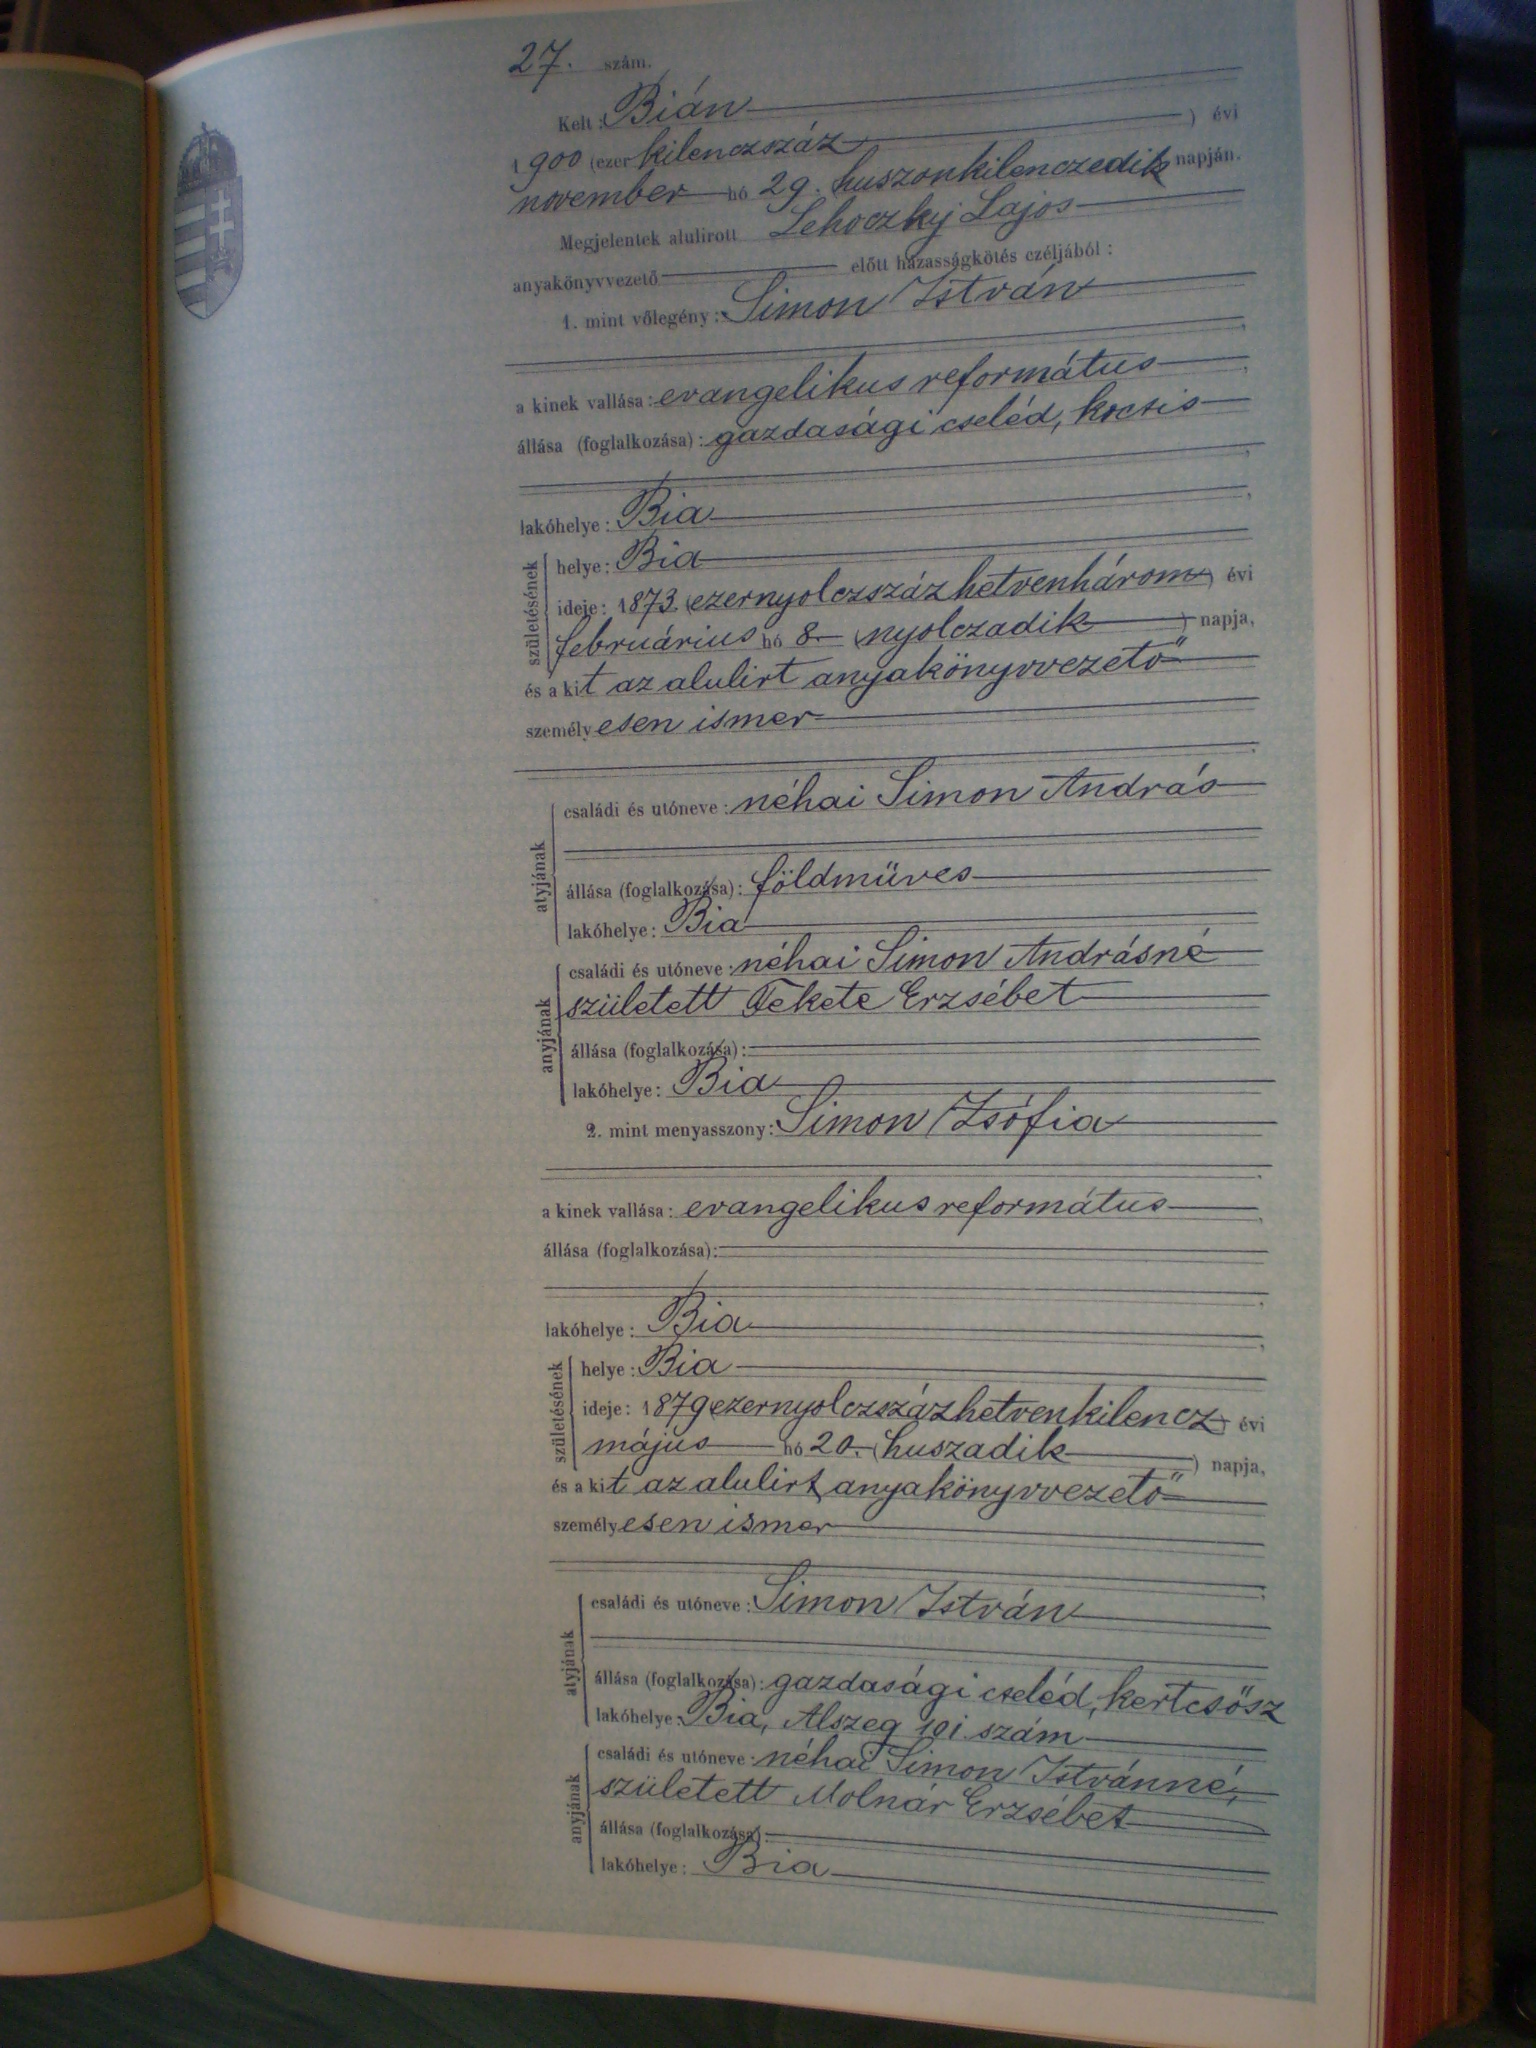 27. szám.
Kelt: Bián
1900 (ezerkilenczszáz) évi
november hó 29. huszonkilenczedik napján.
Megjelentek alulirott Lehoczky Lajos
anyakönyvvezető előtt házasságkötés czéljából:
1. mint vőlegény: Simon István
a kinek vallása: evangelikus református
állása (foglalkozása): gazdasági cseléd, kocsis
lakóhelye: Bia
születésének
helye: Bia
ideje: 1873 (ezernyolczszázhetvenhárom) évi
februárius hó 8. (nyolczadik) napja,
és a kit az alulirt anyakönyvvezető
személyesen ismer
atyjának
családi és utóneve: néhai Simon András
állása (foglalkozása): földmüves
lakóhelye: Bia
anyjának
családi és utóneve: néhai Simon Andrásné
született Fekete Erzsébet
állása (foglalkozása):
lakóhelye: Bia
2. mint menyasszony: Simon Zsófia
a kinek vallása: evangelikus református
állása (foglalkozása):
lakóhelye: Bia
születésének
helye: Bia
ideje: 1879 (ezernyolczszázhetvenkilencz) évi
május hó 20. (huszadik) napja,
és a kit az alulirt anyakönyvvezető
személyesen ismer
atyjának
családi és utóneve: Simon István
állása (foglalkozása): gazdasági cseléd, kertcsősz
lakóhelye: Bia, Alszeg 101 szám
anyjának
családi és utóneve: néhai Simon Istvánné,
született Molnár Erzsébet
állása (foglalkozása):
lakóhelye: Bia